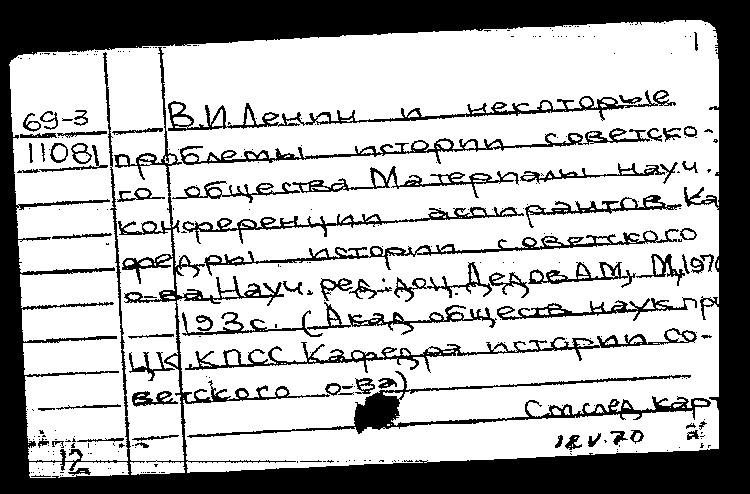 1
69-3 В.И.Ленин и некоторые
11081 проблемы истории советско-
го общества Материалы науч.
конференции аспирантов Ка
федры истории советского
о-ва, Науч. ред.: доц. Дедов А М, М, 1970
193 с. (Акад обществ наук при
ЦК.КПСС. Кафедра истории со-
ветского о-ва)
См.след карт
12 12 V.70